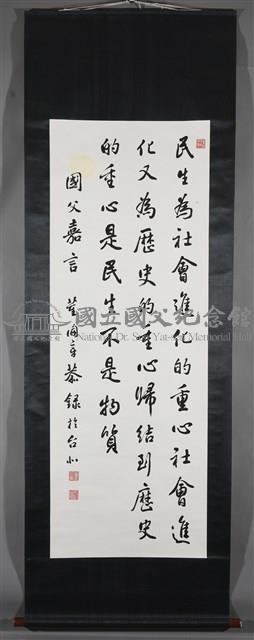 民生為社會進化的重心社會進
化又為歷史的重心歸結到歷史
的重心是民生不是物質
國父嘉言
董開章恭錄於台北
國立國父紀念館
National Dr. Sun Yat-sen Memorial Hall